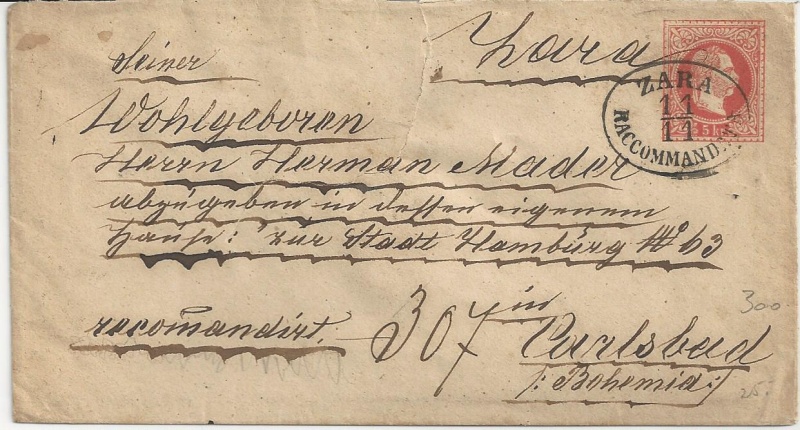 Seiner Zara
ZARA
11
11
RACCOMMAND
5
Wohlgeboren
Herrn Herman Mader
abzugeben in dessen eigenem
Hause: "zur Stadt Hamburg No 63
recom̄andirt. 307 in
300
Carlsbad
/: Bohemia :/